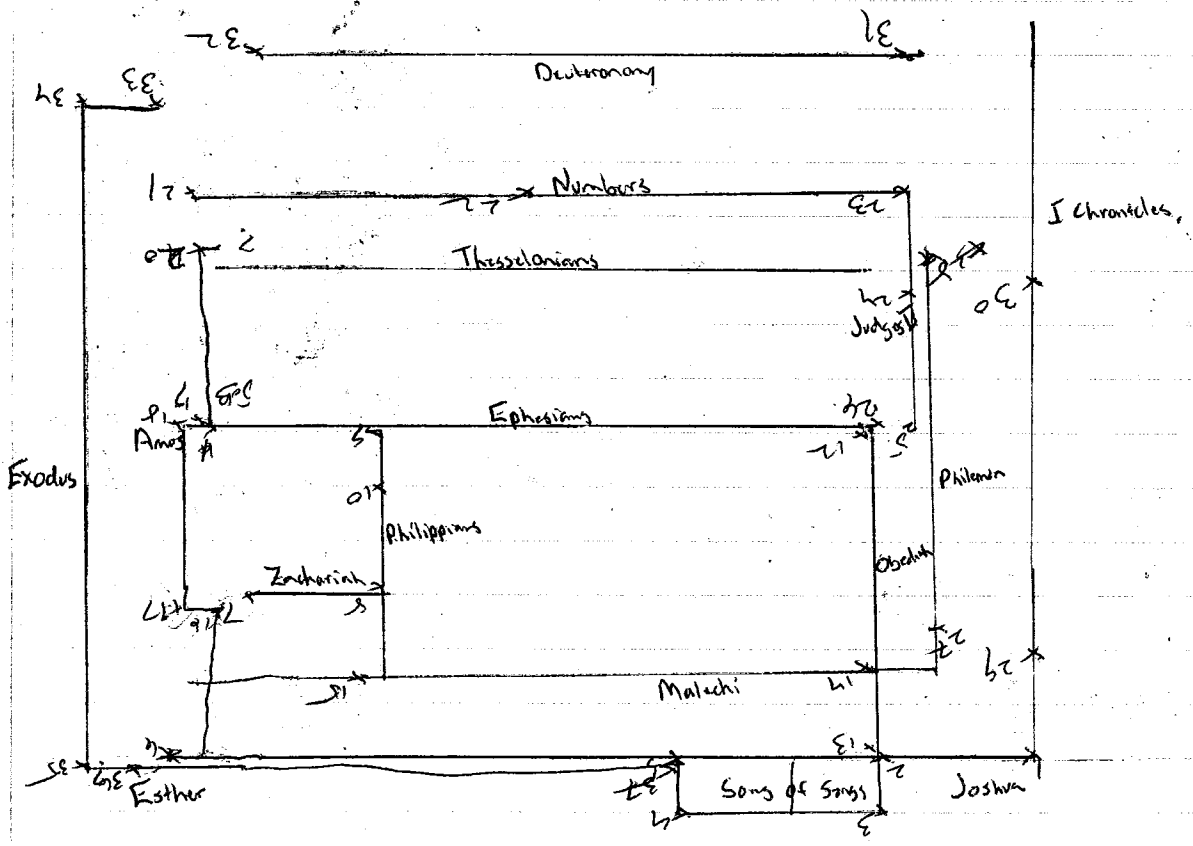 31
32
Deuteronomy
33
34
21
Numbers
22
23
I Chronicles,
20
?
Thesselonians
24
30
Judges
17
18
Ephesians
Amos
9
12
25
Exodus
10
Philippians
Philemon
Obediah
Zachariah
8
17
16
7
27
29
15
Malechi
14
6
13
2
1
35
36
Esther
37
Song of Songs
Joshua
4
3